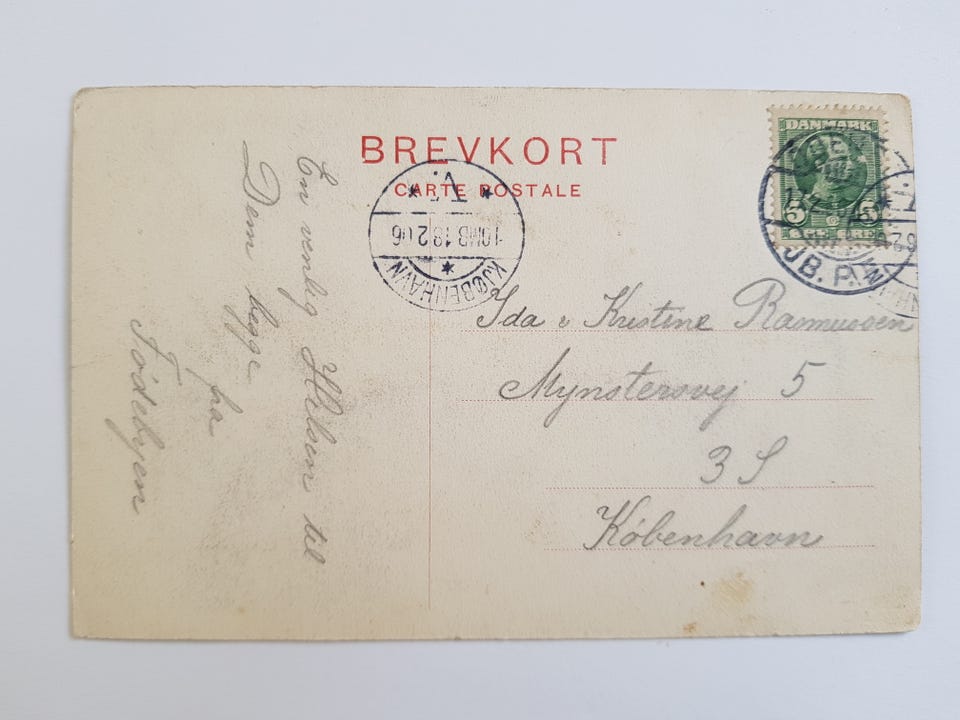 BREVKORT
CARTE POSTALE
DANMARK
5 5
ØRE ØRE
JB. P.
KJØBENHAVN
10MB 18 2 06
En venlig Hilsen til
Dem begge
fra
Fødebyen
Ida & Kristine Rasmussen
Mynstersvej 5
3 S
København